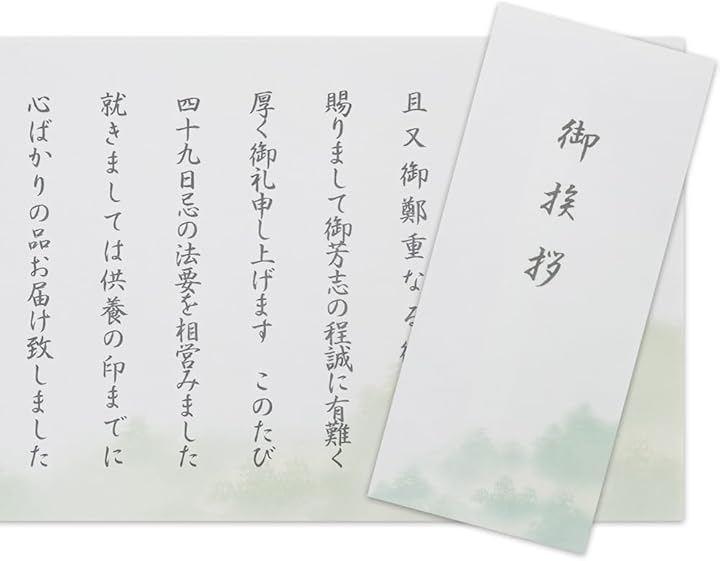 御挨拶
且又御鄭重なる
賜りまして御芳志の程誠に有難く
厚く御礼申し上げます このたび
四十九日忌の法要を相営みました
就きましては供養の印までに
心ばかりの品お届け致しました